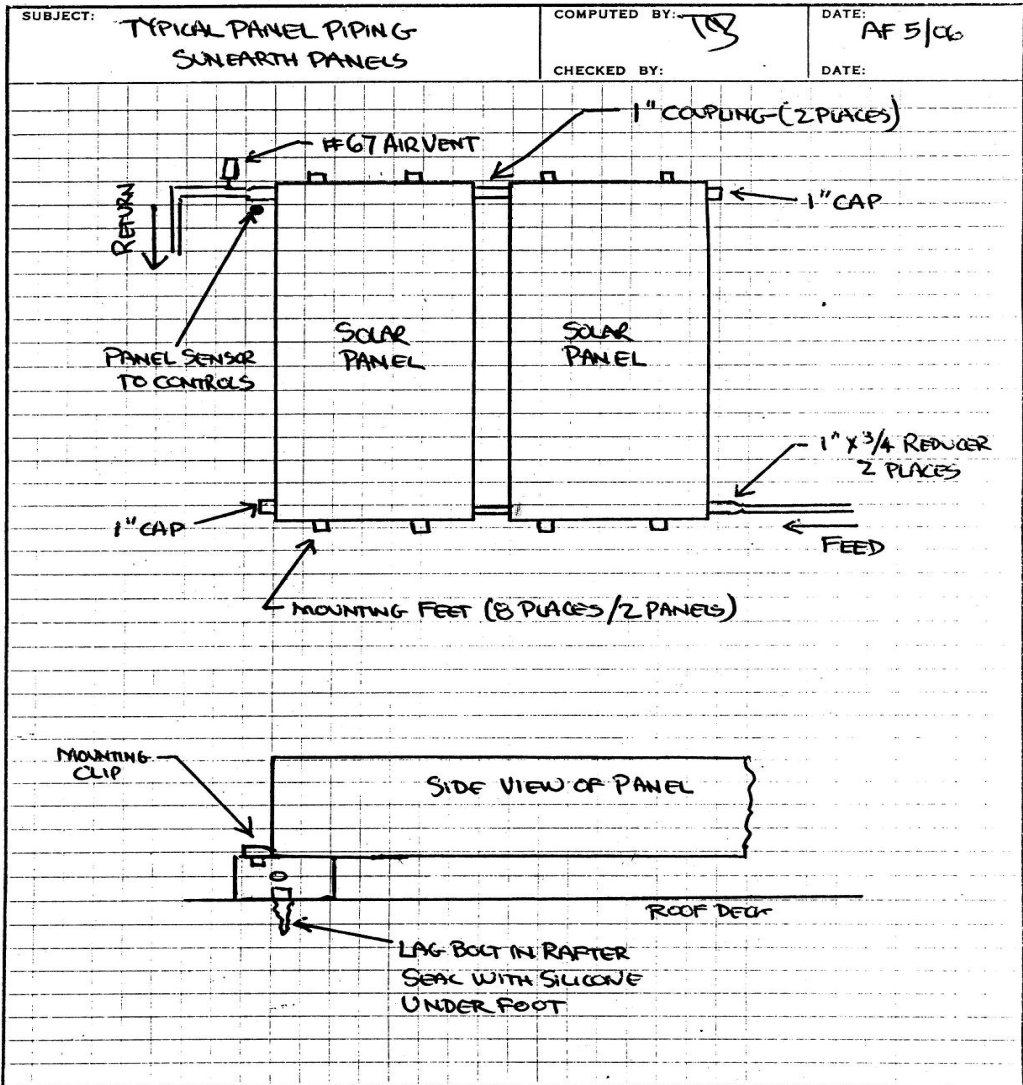 SUBJECT:
TYPICAL PANEL PIPING
SUNEARTH PANELS
COMPUTED BY:
CHECKED BY:
DATE:
AF 5/06
DATE:
1" COUPLING (2 PLACES)
#67 AIR VENT
1" CAP
RETURN
PANEL SENSOR
TO CONTROLS
SOLAR
PANEL
SOLAR
PANEL
1" X 3/4 REDUCER
2 PLACES
1" CAP
FEED
MOUNTING FEET (8 PLACES/2 PANELS)
MOUNTING
CLIP
SIDE VIEW OF PANEL
ROOF DECK
LAG BOLT IN RAFTER
SEAL WITH SILICONE
UNDER FOOT